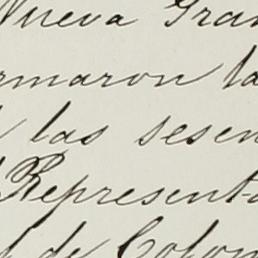 Nueva Gran
rmaron la
las sesen
Representa
de Colom